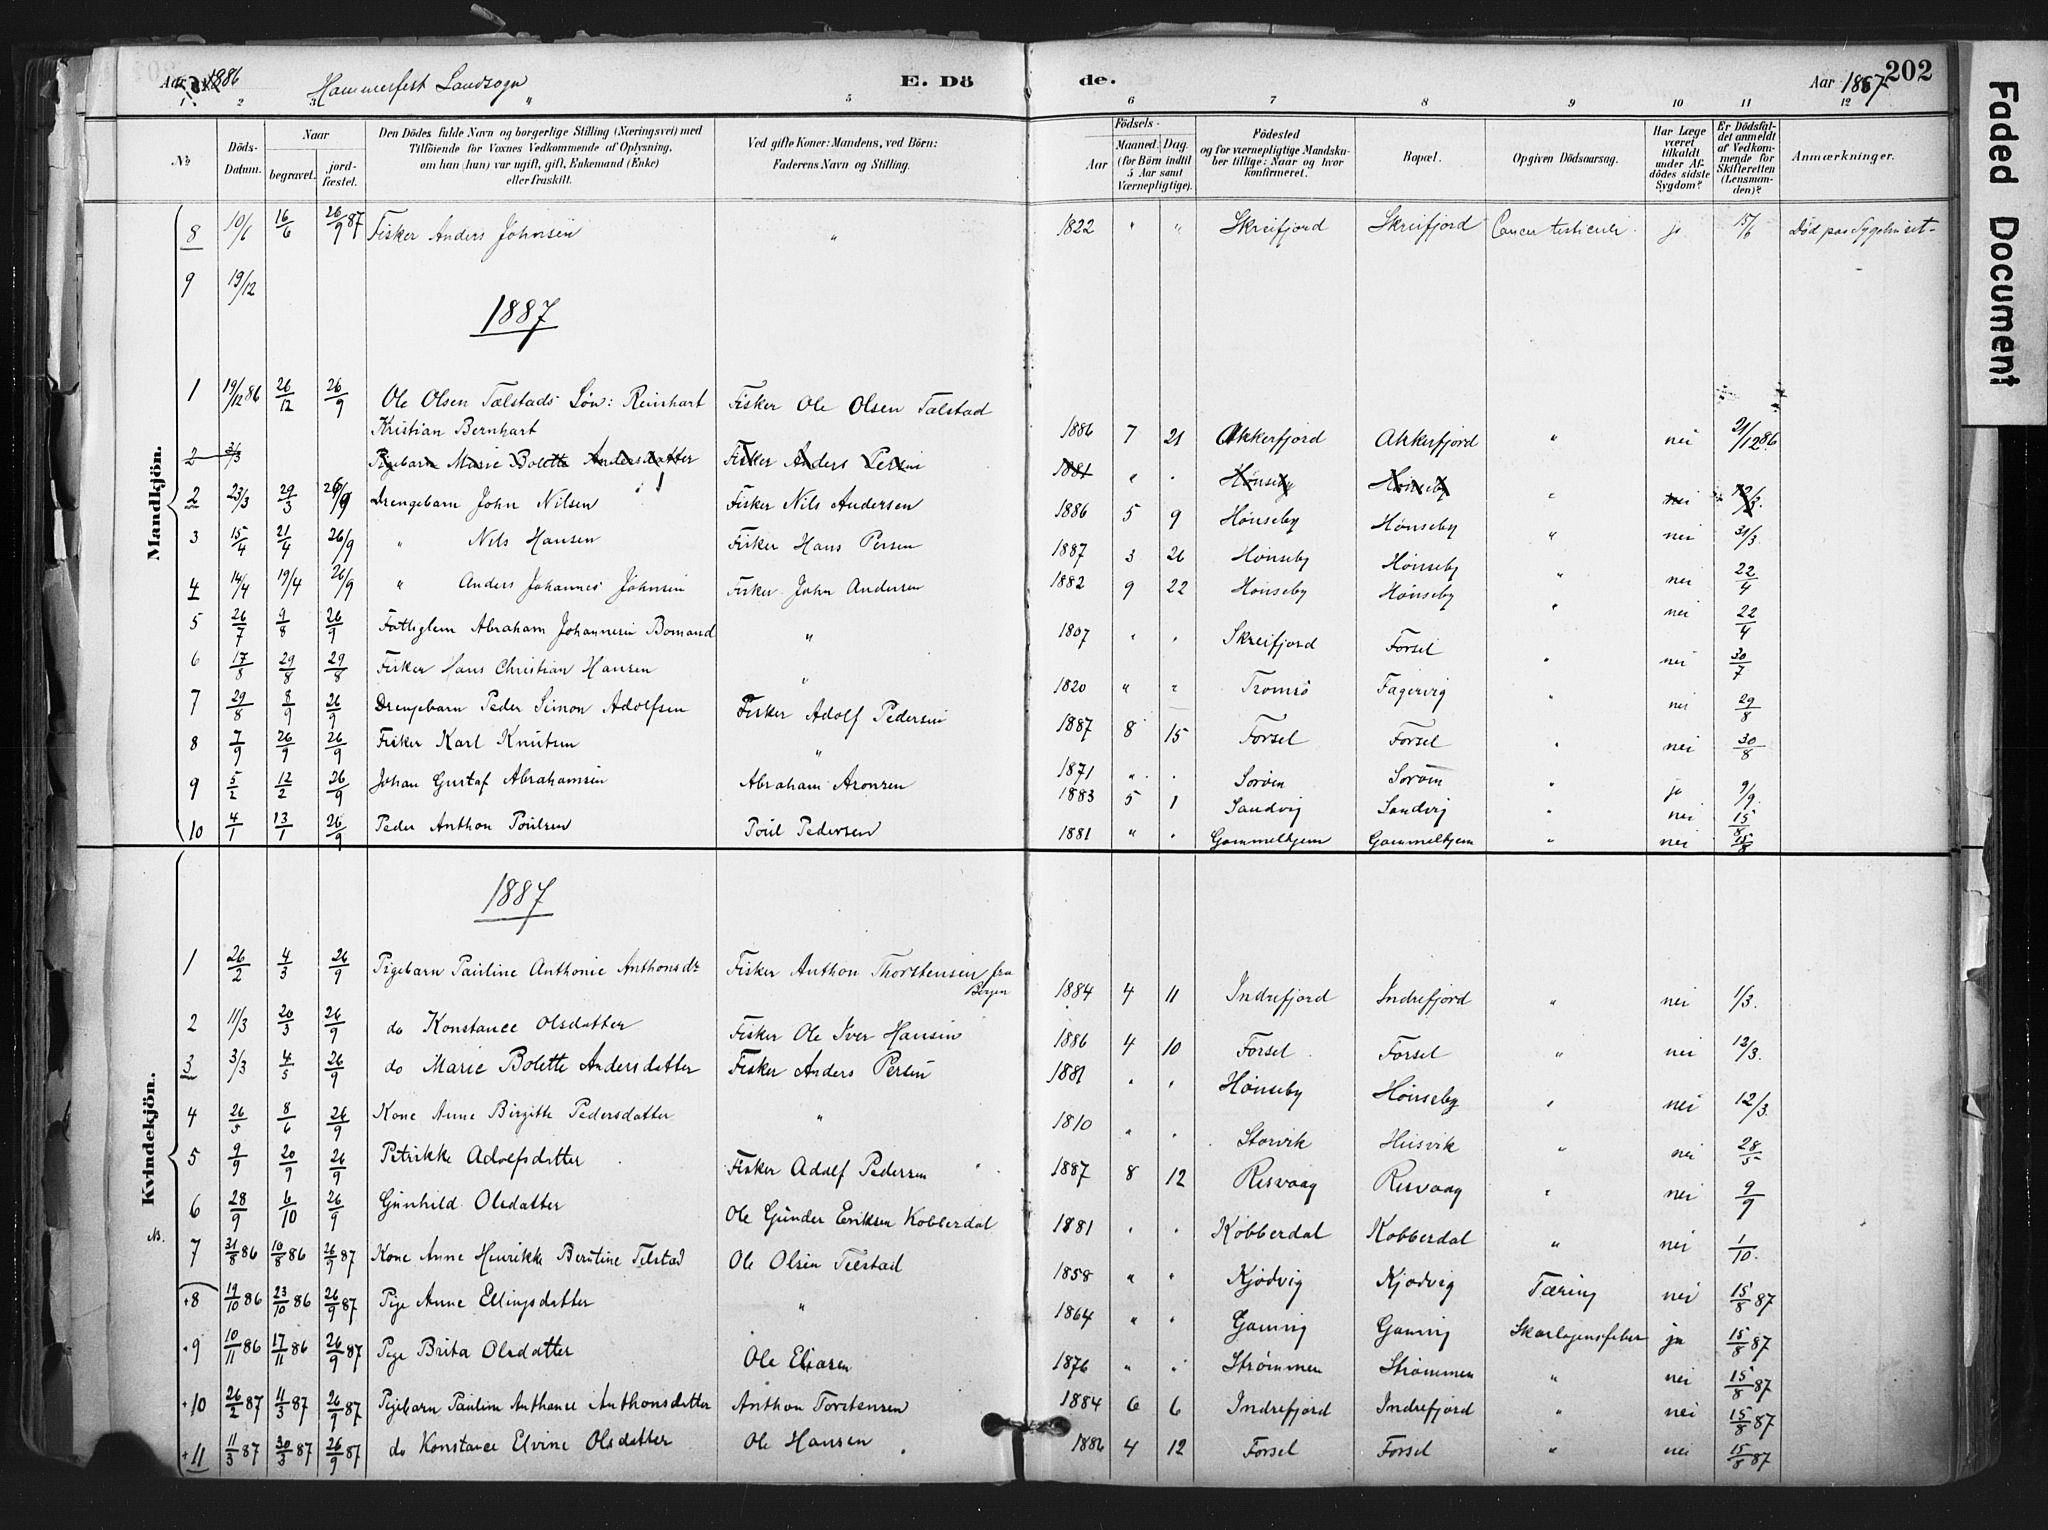 Aar 1886 Hammerfest Landsogn E. Döde. Aar 1887 202
1 2 3 5 6 7 8 9 10 11 12
No
Döds-Datum.
Naar begravet. jordfæstet.
Den Dödes fulde Navn og borgerlige Stilling (Næringsvei) med Tilföiende for Voxnes Vedkommende af Oplysning, om han (hun) var ugift, gift, Enkemand (Enke) eller fraskilt.
Ved gifte Koner: Mandens, ved Börn: Faderens Navn og Stilling.
Födsels-
Aar
Maaned. Dag. (for Börn indtil 5 Aar samt Værnepligtige).
Födested og for værnepligtige Mandskaber tillige: Naar og hvor konfirmeret.
Bopæl.
Opgiven Dödsaarsag.
Har Læge været tilkaldt under Afdödes sidste Sygdom?
Er Dödsfaldet anmeldt af Vedkommende for Skifteretten (Lensmanden)?
Anmærkninger.
Mandkjön.
8 10/6 16/6 26/9 87 Fisker Anders Johnsen " 1822 " " Skreifjord Skreifjord Cancer testiculi ja 15/6 Död paa Sygehuset
9 19/12
1887
1 19/12 86 26/12 26/9 Ole Olsen Talstads Sön: Reinhart Fisker Ole Olsen Talstad
Kristian Bernhart 1886 7 21 Akkerfjord Akkerfjord " nei 21/12 86
2 3/3 Pigebarn Marie Bolette Andersdatter Fisker Anders Persen 1881 " " Hönseby Hönseby " nei 12/3
2 23/3 29/3 26/9 Drengebarn John Nilsen Fisker Nils Andersen 1886 5 9 Hönseby Hönseby " nei 31/3
3 15/4 21/4 26/9 " Nils Hansen Fisker Hans Persen 1887 3 26 Hönseby Hönseby " nei 22/4
4 14/4 19/4 26/9 " Anders Johannes Johnsen Fisker John Andersen 1882 9 22 Hönseby Hönseby " nei 22/4
5 26/7 9/8 26/9 Fattiglem Abraham Johannesen Bomand " 1807 " " Skreifjord Forsöl " nei 30/7
6 17/8 29/8 29/8 Fisker Hans Christian Hansen " 1820 " " Tromsö Fagervig " nei 29/8
7 29/8 8/9 26/9 Drengebarn Peder Simon Adolfsen Fisker Adolf Pedersen 1887 8 15 Forsöl Forsöl " nei 30/8
8 7/9 26/9 26/9 Fisker Karl Knutsen " 1871 " " Soröen Soröen " ja 9/9
9 5/2 12/2 26/9 Johan Gustaf Abrahamsen Abraham Aronsen 1883 5 1 Sandvig Sandvig " nei 15/8
10 4/1 13/1 26/9 Peder Anthon Poulsen Poul Pedersen 1881 " " Gammelhjem Gammelhjem " nei 15/8
Kvindekjön.
1887
1 26/2 4/3 26/9 Pigebarn Pauline Anthonie Anthonsdr Fisker Anthon Thorstensen fra
Bergen 1884 4 11 Indrefjord Indrefjord " nei 1/3
2 11/3 20/3 26/9 do Konstance Olsdatter Fisker Ole Iver Hansen 1886 4 10 Forsöl Forsöl " nei 12/3
3 3/3 4/5 26/9 do Marie Bolette Andersdatter Fisker Anders Persen 1881 " " Hönseby Hönseby " nei 12/3
4 26/5 8/6 26/9 Kone Anne Birgitte Pedersdatter " 1810 " " Storvik Husvik " nei 28/5
5 9/9 20/9 26/9 Petrikke Adolfsdatter Fisker Adolf Pedersen 1887 8 12 Risvaag Risvaag " nei 9/9
6 28/9 6/10 26/9 Gunhild Olsdatter Ole Gunder Eriksen Kobberdal 1881 " " Kobberdal Kobberdal " nei 1/10
N. 7 31/8 86 10/8 86 26/9 87 Kone Anne Henrikke Berntine Telstad Ole Olsen Telstad 1858 " " Kjödvig Kjödvig Tæring nei 15/8 87
+8 19/10 86 23/10 86 26/9 87 Pige Anne Ellingsdatter " 1864 " " Gamvig Gamvig Skarlagensfeber ja 15/8 87
+9 10/11 86 17/11 86 26/9 87 Pige Brita Olsdatter Ole Eliasen 1876 " " Strömmen Strömmen " nei 15/8 87
+10 26/2 87 11/3 87 26/9 87 Pigebarn Pauline Anthance Anthonsdatter Anthon Torstensen 1884 6 6 Indrefjord Indrefjord " nei 15/8 87
+11 11/3 87 30/3 87 26/9 87 do Konstance Elvine Olsdatter Ole Hansen 1886 4 12 Forsöl Forsöl " nei 15/8 87
Faded Document